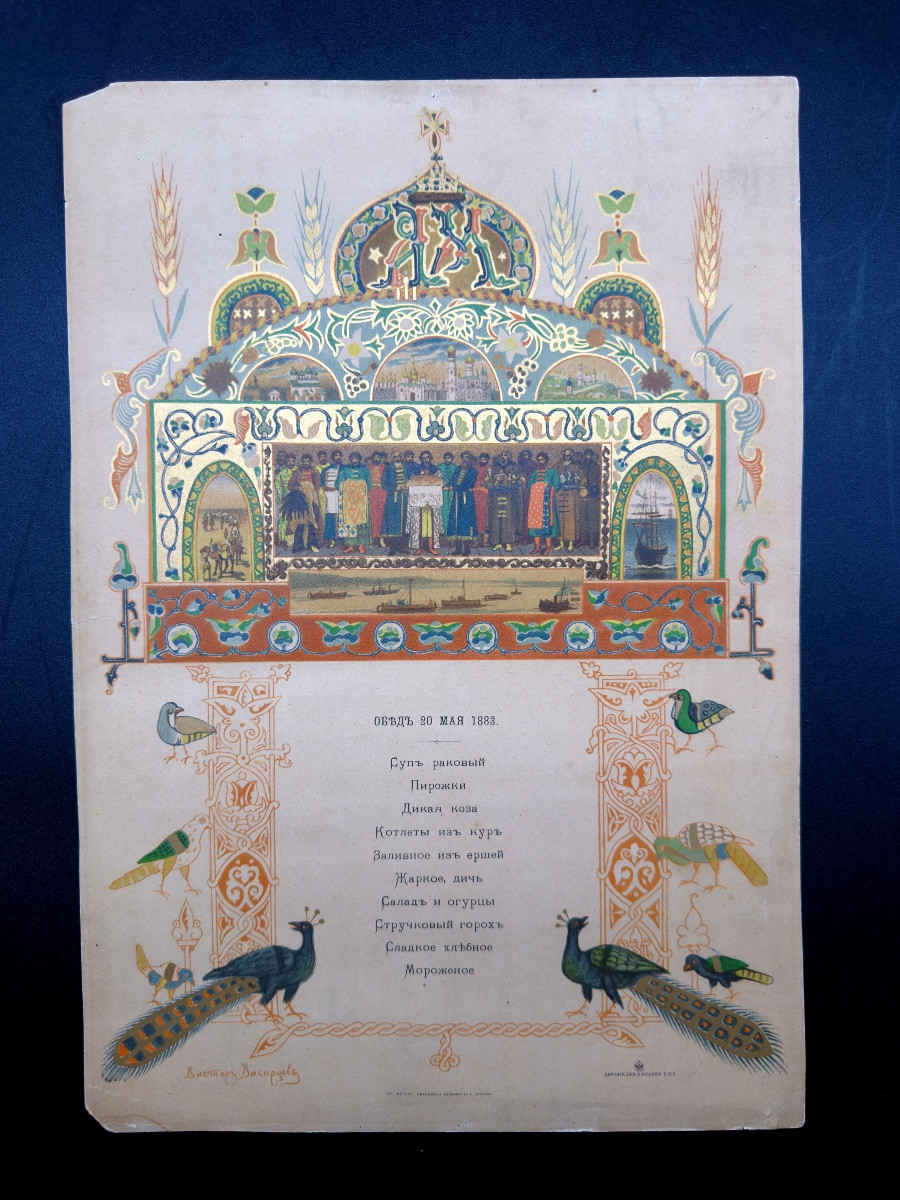 ОБѢДЪ 20 МАЯ 1883.
Супъ раковый
Пирожки
Дикая коза
Котлеты изъ куръ
Заливное изъ ершей
Жаркое, дичь
Саладъ и огурцы
Стручковый горохъ
Сладкое хлѣбное
Мороженое
Викторъ Васнцовъ